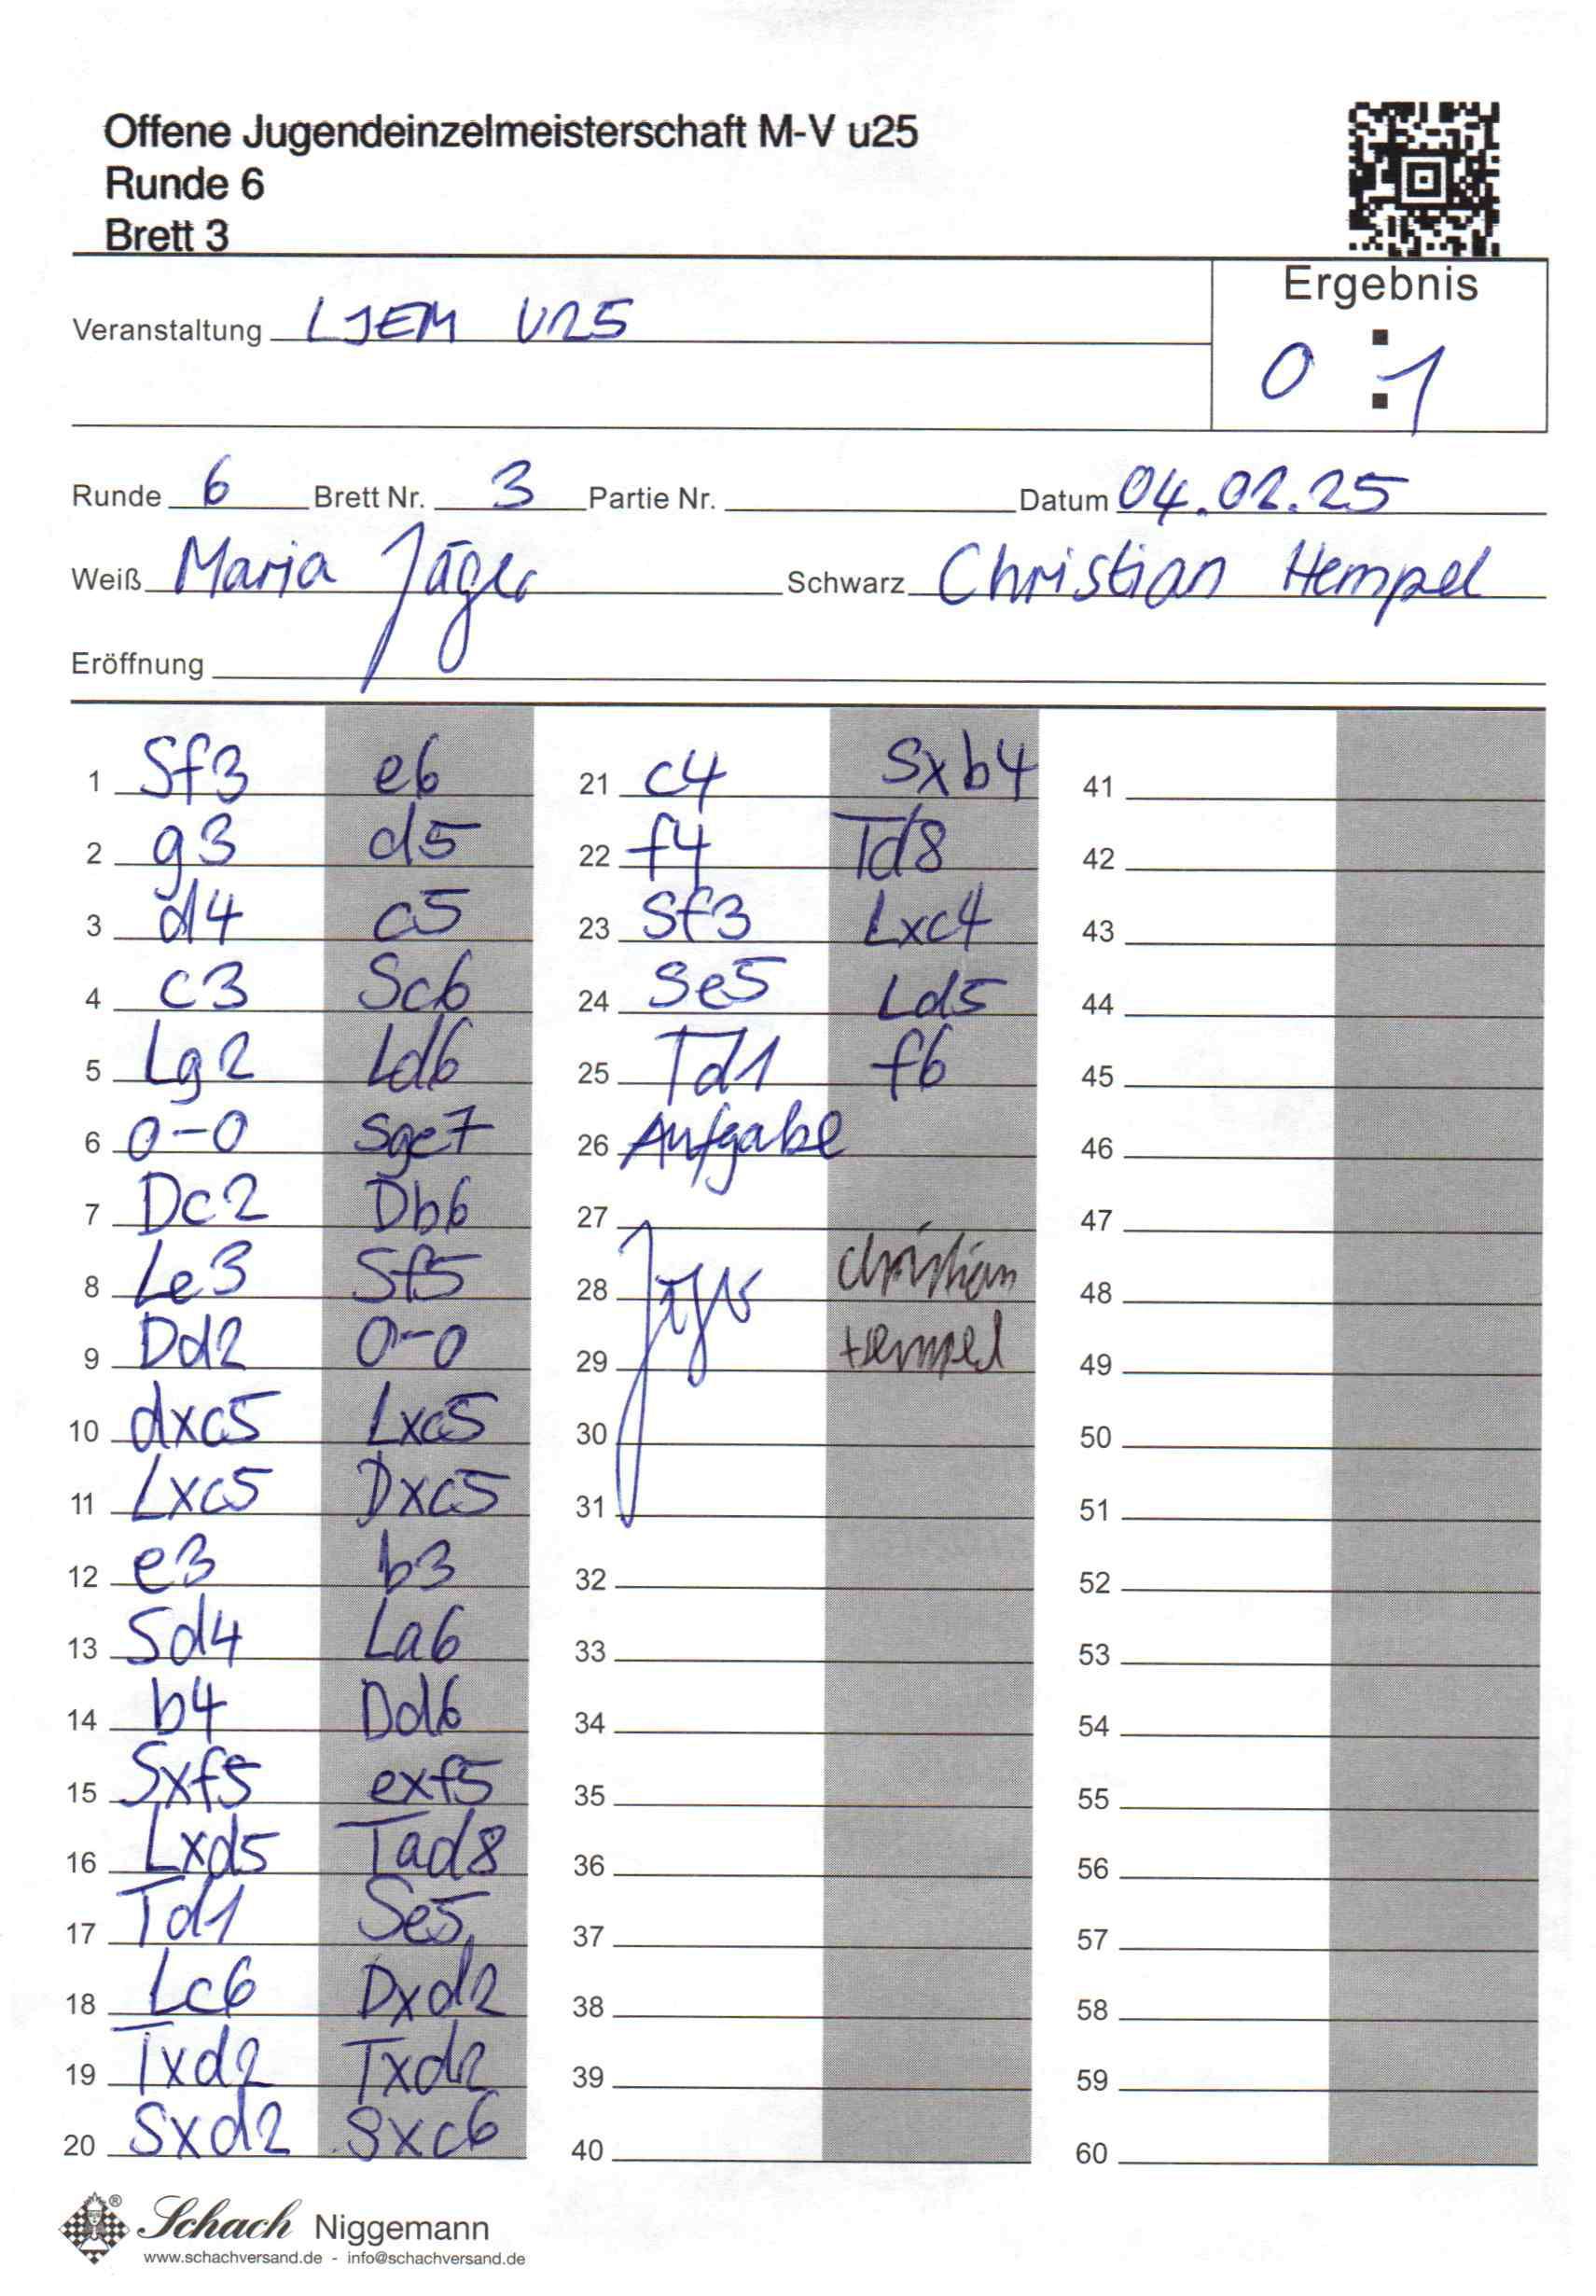 Offene Jugendeinzelmeisterschaft M-V u25
Runde 6
Brett 3
Ergebnis
0 : 1
Veranstaltung LJEM U25
Runde 6 Brett Nr. 3 Partie Nr. Datum 04.02.25
Weiß Maria Jäger Schwarz Christian Hempel
Eröffnung
1 Sf3 e6 21 c4 Sxb4 41
2 g3 d5 22 f4 Td8 42
3 d4 c5 23 Sf3 Lxc4 43
4 c3 Sc6 24 Se5 Ld5 44
5 Lg2 Ld6 25 Td1 f6 45
6 0-0 Sge7 26 Aufgabe 46
7 Dc2 Db6 27 47
8 Le3 Sf5 28 Jäger Christian 48
9 Dd2 0-0 29 Hempel 49
10 dxc5 Lxc5 30 50
11 Lxc5 Dxc5 31 51
12 e3 b3 32 52
13 Sd4 La6 33 53
14 b4 Dd6 34 54
15 Sxf5 exf5 35 55
16 Lxd5 Tad8 36 56
17 Td1 Se5 37 57
18 Lc6 Dxd2 38 58
19 Txd2 Txd2 39 59
20 Sxd2 Sxc6 40 60
Schach Niggemann
www.schachversand.de - info@schachversand.de